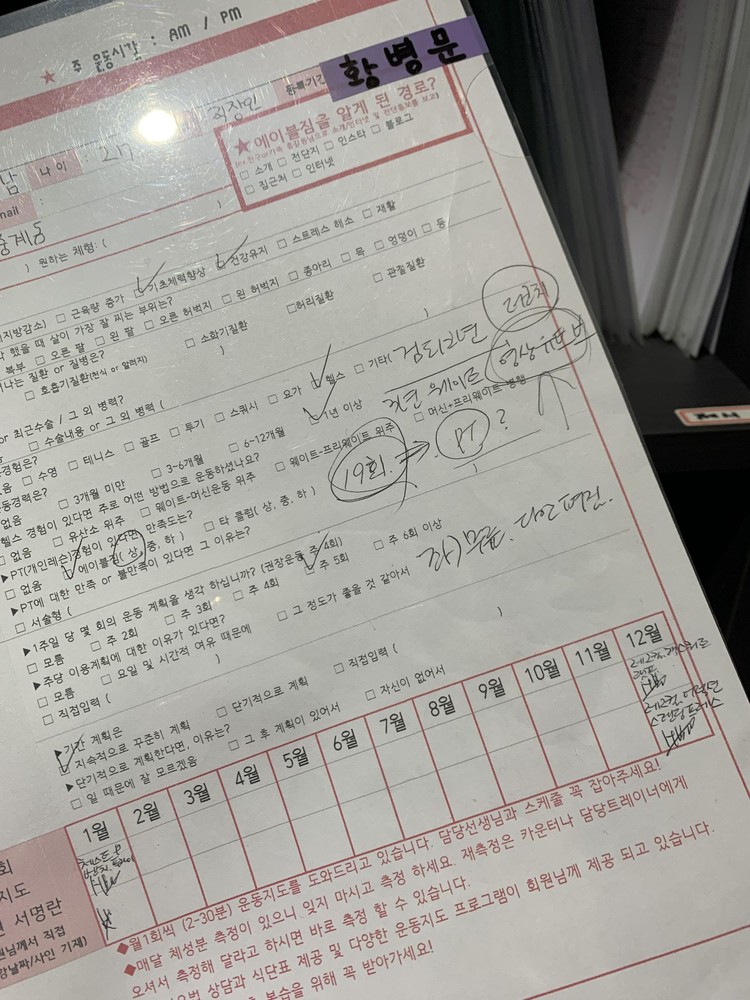 ★ 주 운동시간 : AM / PM
황병문
직장인
등록기간
남 나이 : 27
★ 에이블짐을 알게 된 경로?
□ 소개 □ 전단지 □ 인스타 □ 블로그
□ 집근처 □ 인터넷
mail :
중계동
) 원하는 체형: ( )
지방감소) □ 근육량 증가 □ 기초체력향상 □ 건강유지 □ 스트레스 해소 □ 재활
했을 때 살이 가장 잘 찌는 부위는?
복부 □ 오른 팔 □ 왼 팔 □ 오른 허벅지 □ 왼 허벅지 □ 종아리 □ 목 □ 엉덩이 □ 등
나는 질환 or 질병은?
□ 호흡기질환(천식 or 알러지) □ 소화기질환 □ 허리질환 □ 관절질환
or 최근수술 / 그 외 병력?
□ 수술내용 or 그 외 병력 ( )
경험은?
없음 □ 수영 □ 테니스 □ 골프 □ 투기 □ 스쿼시 □ 요가 □ 헬스 □ 기타( 검도2년
동경력은?
없음 □ 3개월 미만 □ 3-6개월 □ 6-12개월 □ 1년 이상
헬스 경험이 있다면 주로 어떤 방법으로 운동하셨나요?
없음 □ 유산소 위주 □ 웨이트-머신운동 위주 □ 웨이트-프리웨이트 위주 □ 머신+프리웨이트 병행
▶PT(개인레슨)경험이 있다면 만족도는?
□ 없음 □ 에이블짐( 상, 중, 하 ) □ 타 클럽( 상, 중, 하 )
19회. → PT ?
▶PT에 대한 만족 or 불만족이 있다면 그 이유는?
□ 서술형 ( )
▶1주일 당 몇 회의 운동 계획을 생각 하십니까? (권장운동 주 4회)
□ 모름 □ 주 2회 □ 주 3회 □ 주 4회 □ 주 5회 □ 주 6회 이상
▶주당 이용계획에 대한 이유가 있다면?
□ 모름 □ 요일 및 시간적 여유 때문에 □ 그 정도가 좋을 것 같아서
□ 직접입력 ( )
▶기간 계획은
□ 지속적으로 꾸준히 계획 □ 단기적으로 계획 □ 직접입력 ( )
▶단기적으로 계획한다면, 이유는?
□ 일 때문에 잘 모르겠음 □ 그 후 계획이 있어서 □ 자신이 없어서
1월 2월 3월 4월 5월 6월 7월 8월 9월 10월 11월 12월
회
지도
서명란
원님께서 직접
강날짜/사인 기재)
◆월1회씩 (2-30분) 운동지도를 도와드리고 있습니다. 담당선생님과 스케줄 꼭 잡아주세요!
◆매달 체성분 측정이 있으니 잊지 마시고 측정 하세요. 재측정은 카운터나 담당트레이너에게
오셔서 측정해 달라고 하시면 바로 측정 할 수 있습니다.
상담과 식단표 제공 및 다양한 운동지도 프로그램이 회원님께 제공 되고 있습니다.
복습을 위해 꼭 받아가세요!